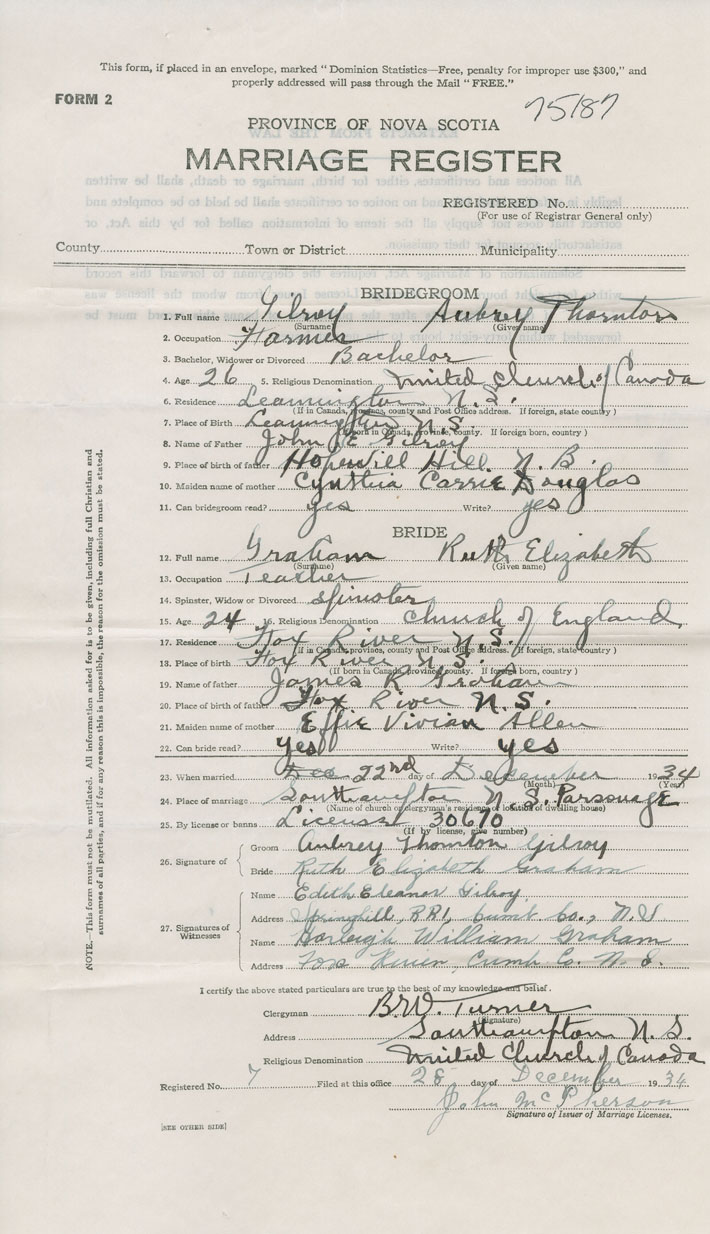 This form, if placed in an envelope, marked "Dominion Statistics—Free, penalty for improper use $300," and
properly addressed will pass through the Mail "FREE."
FORM 2
75187
PROVINCE OF NOVA SCOTIA
MARRIAGE REGISTER
REGISTERED No.
(For use of Registrar General only)
County Town or District Municipality
BRIDEGROOM
1. Full name Gilroy Aubrey Thornton
(Surname) (Given name)
2. Occupation Farmer
3. Bachelor, Widower or Divorced Bachelor
4. Age 26 5. Religious Denomination United Church of Canada
6. Residence Leamington N.S.
(If in Canada, province, county and Post Office address. If foreign, state country)
7. Place of Birth Leamington N.S.
(If born in Canada, province, county. If foreign born, country)
8. Name of Father John E Gilroy
9. Place of birth of father Hopewill Hill. N.B.
10. Maiden name of mother Cynthia Carrie Douglas
11. Can bridegroom read? yes Write? yes
BRIDE
12. Full name Graham Ruth Elizabeth
(Surname) (Given name)
13. Occupation Teacher
14. Spinster, Widow or Divorced Spinster
15. Age 24 16. Religious Denomination Church of England
17. Residence Fox River N.S.
(If in Canada, province, county and Post Office address. If foreign, state country)
18. Place of birth Fox River N.S.
(If born in Canada, province, county. If foreign born, country)
19. Name of father James R Graham
20. Place of birth of father Fox River N.S.
21. Maiden name of mother Effie Vivian Allen
22. Can bride read? yes Write? yes
23. When married Dec 22nd day of December 1934
(Month) (Year)
24. Place of marriage Southampton N.S. Parsonage
(Name of church or clergyman's residence or location of dwelling house)
25. By license or banns License 30670
(If by license, give number)
26. Signature of
Groom Aubrey Thornton Gilroy
Bride Ruth Elizabeth Graham
27. Signatures of Witnesses
Name Edith Eleanor Gilroy
Address Springhill, RR1, Cumb. Co., N.S
Name Harleigh William Graham
Address Fox River, Cumb Co. N.S.
I certify the above stated particulars are true to the best of my knowledge and belief.
Clergyman B.W. Turner
(Signature)
Address Southampton N.S.
Religious Denomination United Church of Canada
Registered No. 7 Filed at this office 28 day of December 1934
John McPherson
Signature of Issuer of Marriage Licenses.
[SEE OTHER SIDE]
NOTE.—This form must not be mutilated. All information asked for is to be given, including full Christian and
surnames of all parties, and if for any reason this is impossible, the reason for the omission must be stated.